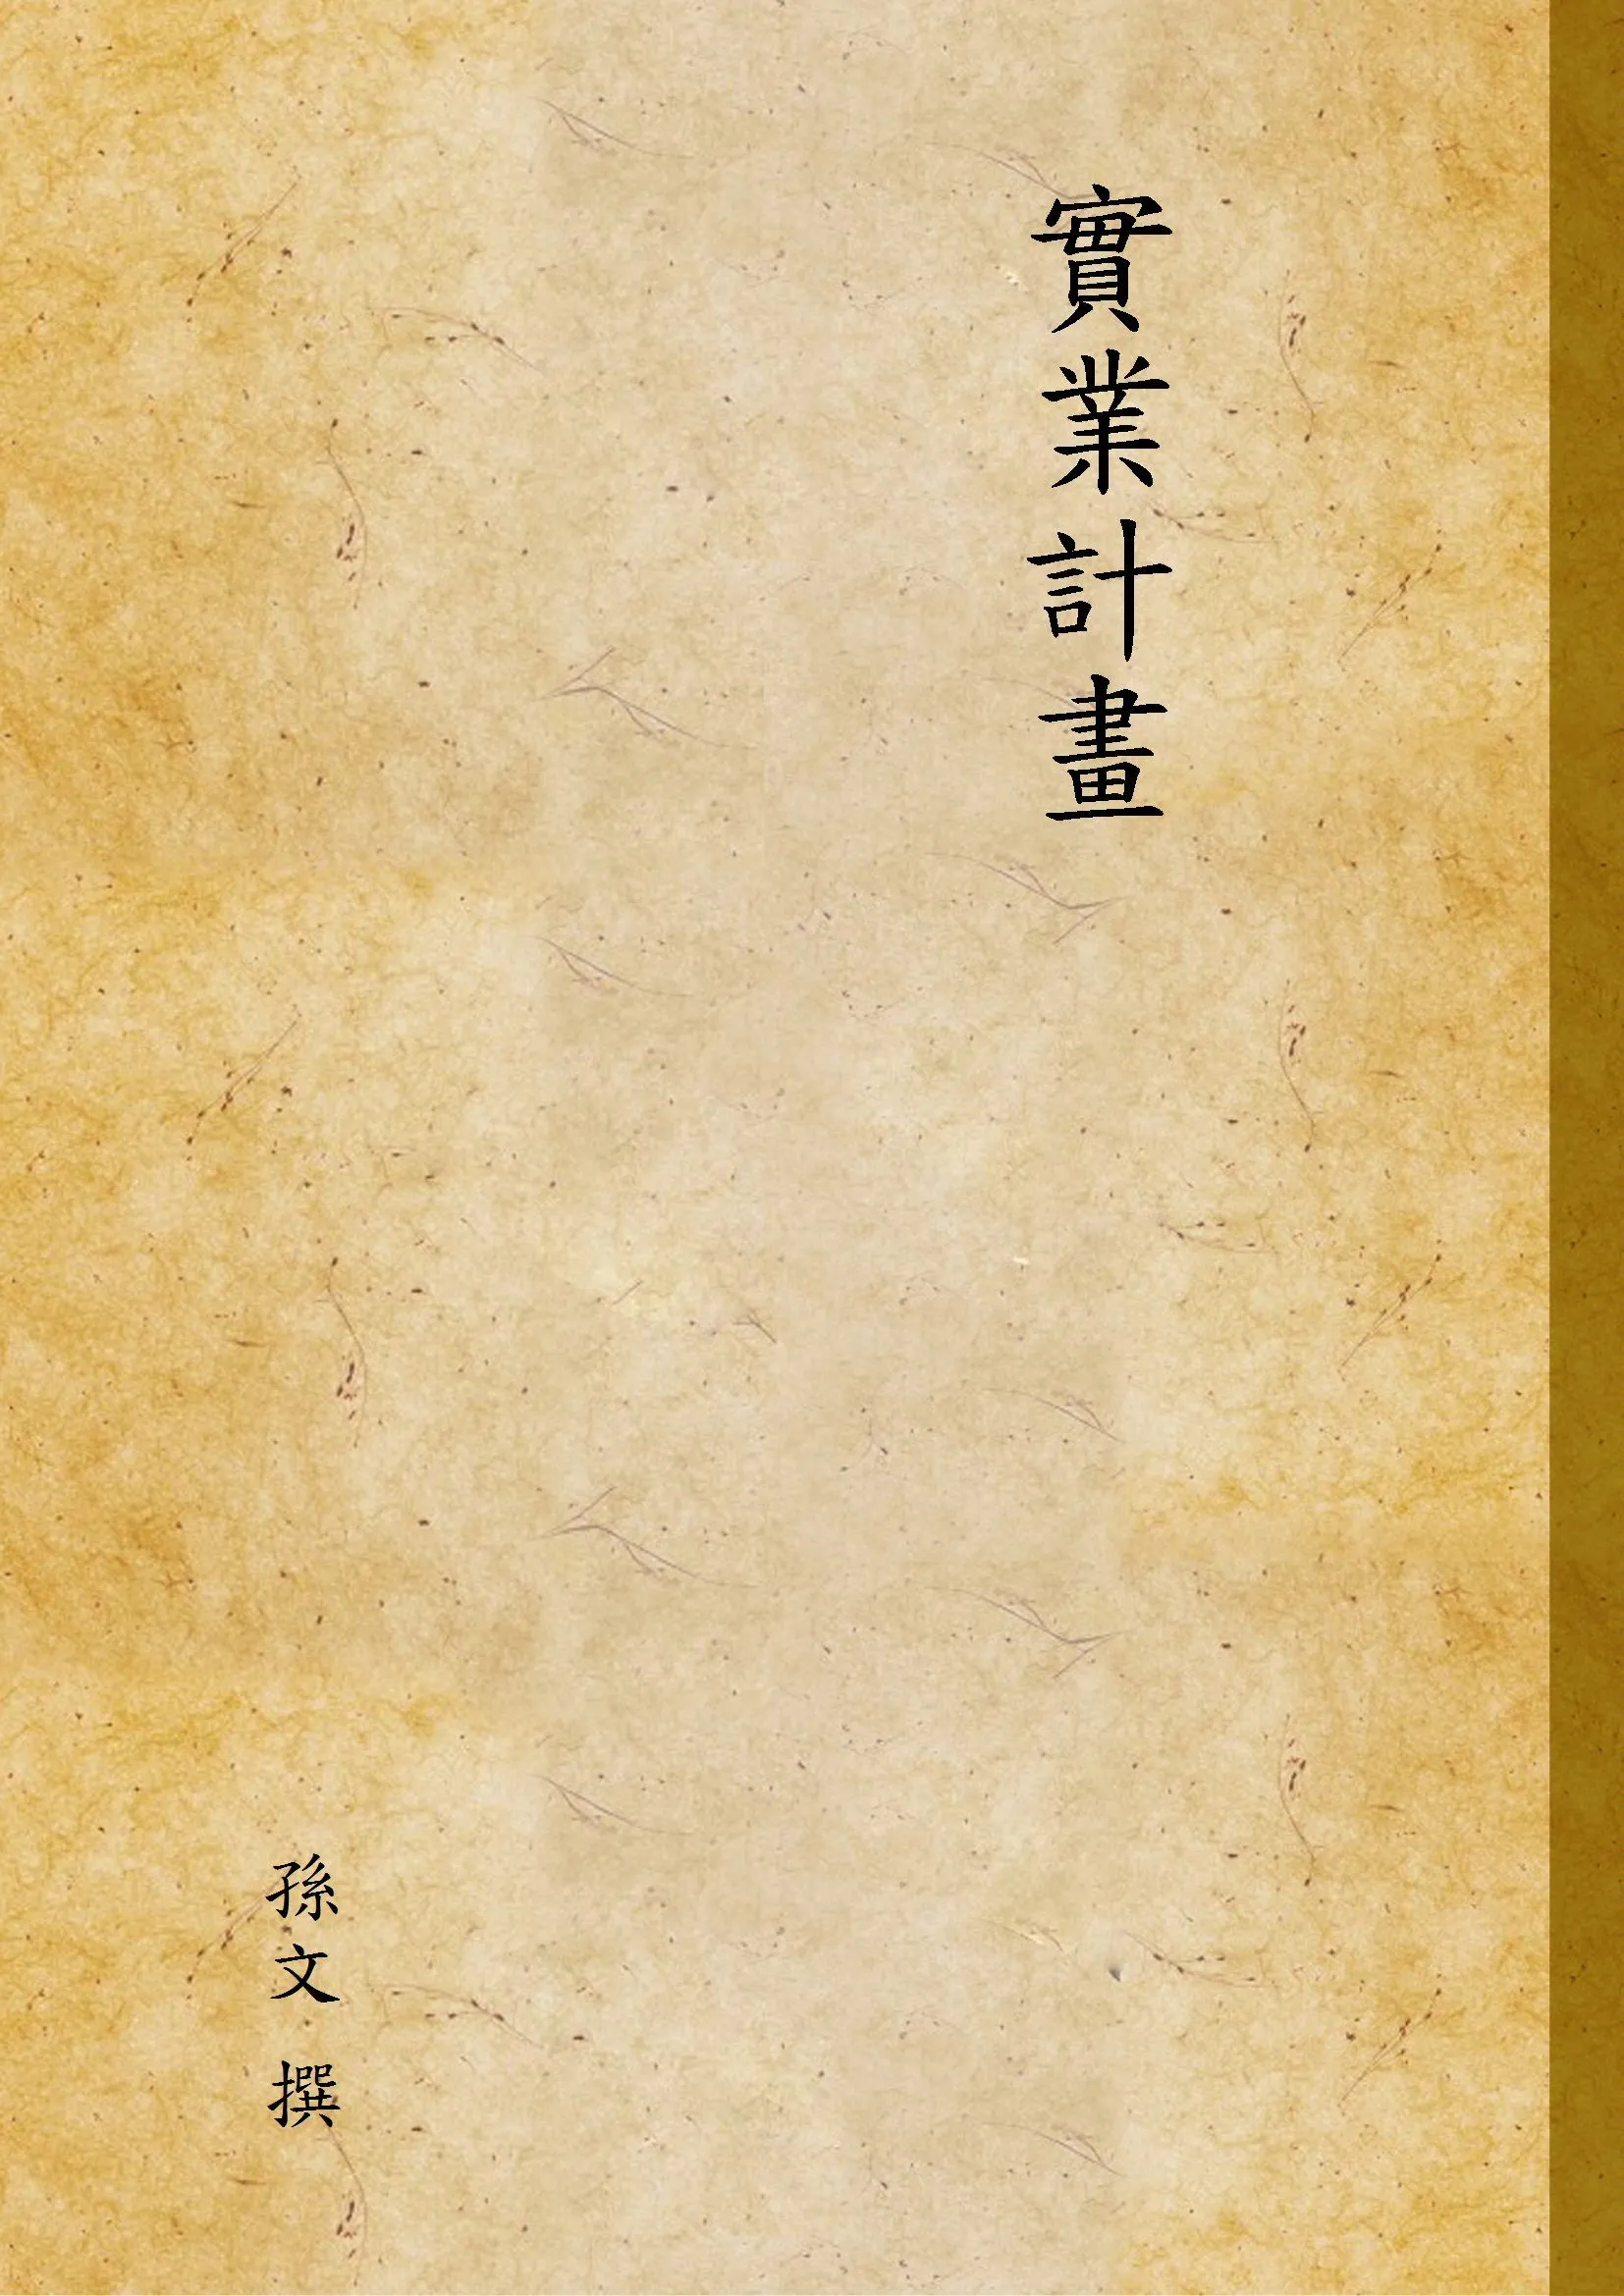 實業計畫
孫文 撰